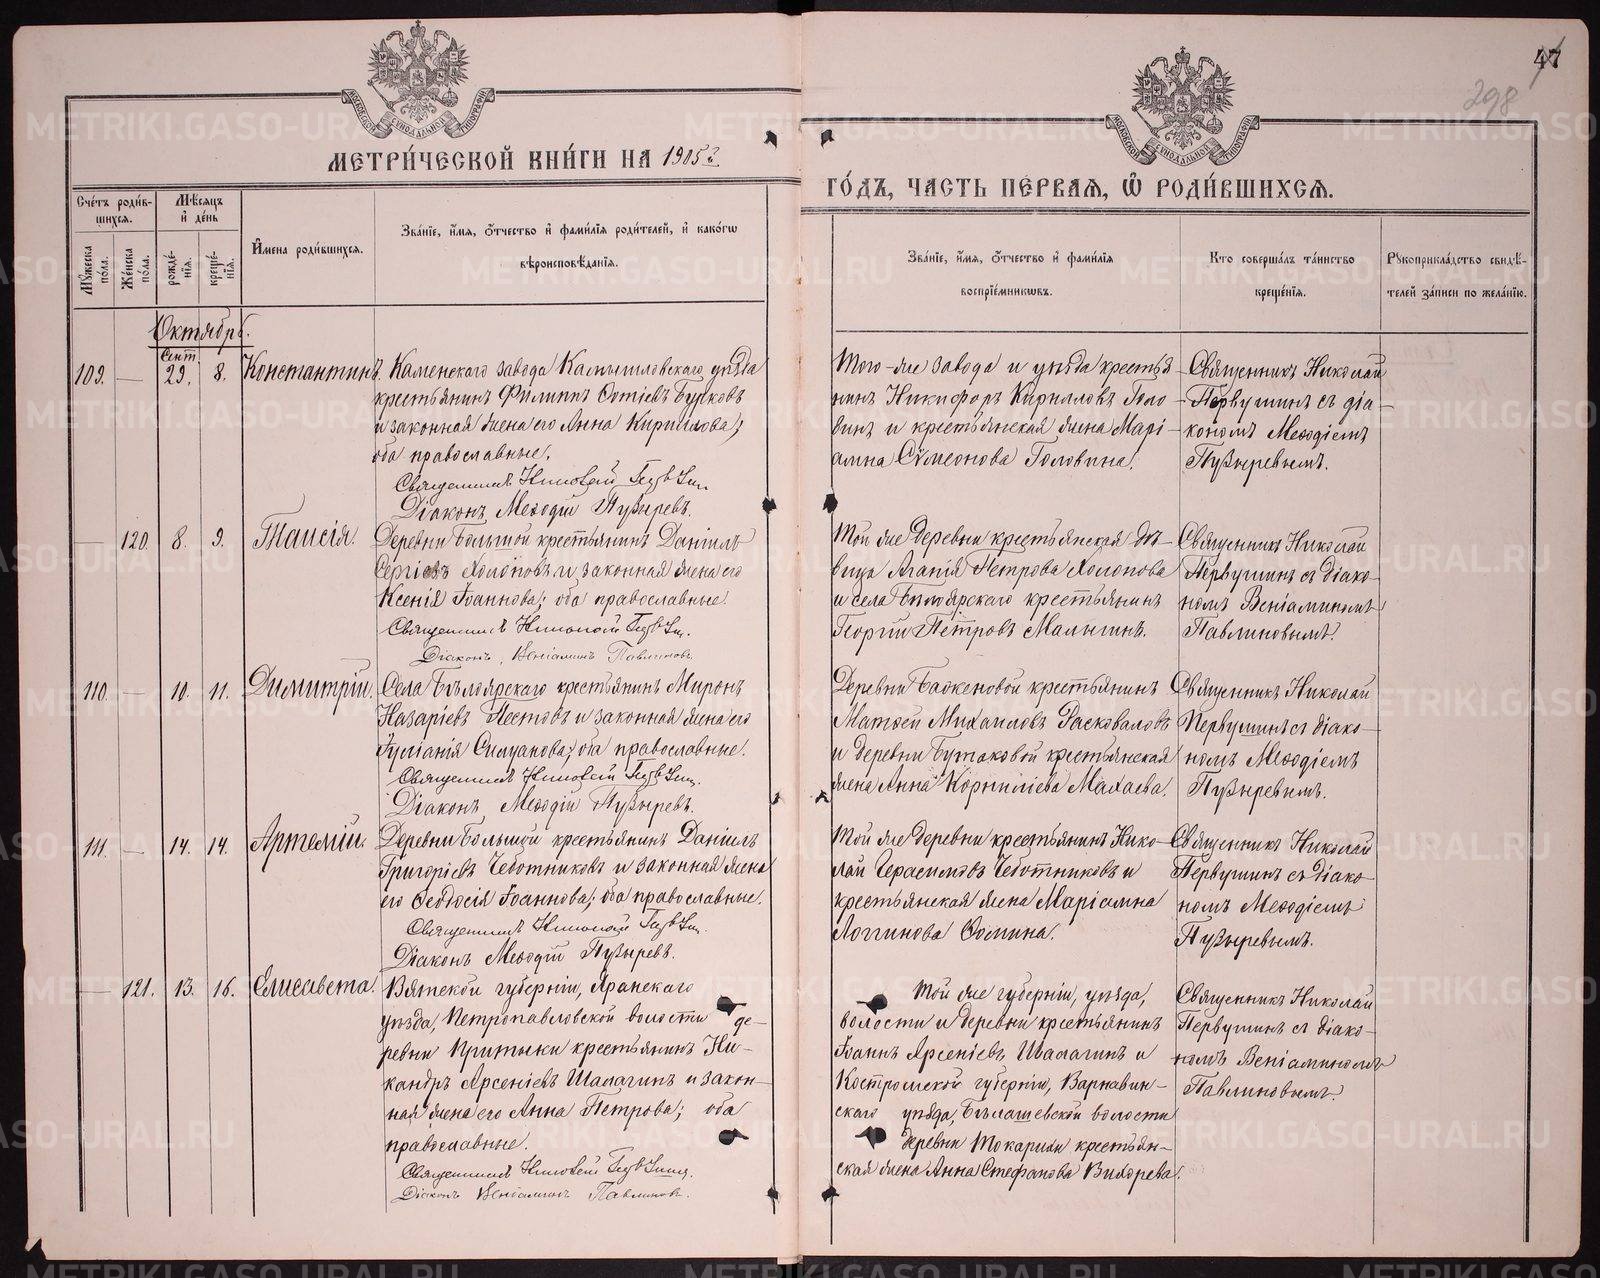 47
298
МОСКОВСКОЙ СѴНОДАЛЬНОЙ ТИПОГРАФІИ
МОСКОВСКОЙ СѴНОДАЛЬНОЙ ТИПОГРАФІИ
МЕТРИ́ЧЕСКОЙ КНИ́ГИ НА 1905й
ГО́ДЪ, ЧА́СТЬ ПЕ́РВАЯ, Ѽ РОДИ́ВШИХСЯ.
Сче́тъ роди́в-
шихся.
Мꙋ́жеска по́ла.
Же́нска по́ла.
Мѣ́сяцъ
и҆ де́нь
рожде́-
нія.
креще́-
нія.
И҆мена роди́вшихся.
Зва́ніе, и҆́мя, ѻ҆́тчество и҆ фами́лія роди́телей, и҆ како́гѡ
вѣроисповѣ́данія.
Зва́ніе, и҆́мя, ѻ҆́тчество и҆ фами́лія
воспріе́мниковъ.
Кто соверша́лъ та́инство
креще́нія.
Рꙋкоприкла́дство свидѣ́-
телей за́писи по жела́нію.
Октябрь.
109. — Сент. 29. 8. Константинъ.
Каменскаго завода Камышловскаго уѣзда
крестьянинъ Филиппъ Ѳотіевъ Бунковъ
и законная жена его Анна Кириллова;
оба православные.
Священникъ Николай Первушинъ
Діаконъ Меѳодій Пузыревъ.
Того-же завода и уѣзда крестья
нинъ Никифоръ Кирилловъ Голо
винъ и крестьянская жена Марі-
амна Сѵмеонова Головина.
Священникъ Николай
Первушинъ съ діа-
кономъ Меѳодіемъ
Пузыревымъ.
— 120. 8. 9. Таисія.
Деревни Большой крестьянинъ Даніилъ
Сергіевъ Холоповъ и законная жена его
Ксенія Іоаннова; оба православные.
Священникъ Николай Первушинъ.
Діаконъ, Веніаминъ Павлиновъ.
Той же деревни крестьянская дѣ-
вица Агапія Петрова Холопова
и села Бѣлоярскаго крестьянинъ
Георгій Петровъ Малыгинъ.
Священникъ Николай
Первушинъ съ діако-
номъ Веніаминомъ
Павлиновымъ.
110. — 10. 11. Димитрій.
Села Бѣлоярскаго крестьянинъ Миронъ
Назаріевъ Пестовъ и законная жена его
Іуліанія Силуанова; оба православные.
Священникъ Николай Первушинъ.
Діаконъ Меѳодій Пузыревъ.
Деревни Баженовой крестьянинъ
Матѳей Михаиловъ Расковаловъ
и деревни Бутаковой крестьянская
жена Анна Корниліева Махаева.
Священникъ Николай
Первушинъ съ діако-
номъ Меѳодіемъ
Пузыревымъ.
111. — 14. 14. Артемій.
Деревни Большой крестьянинъ Даніилъ
Григоріевъ Чеботниковъ и законная жена
его Ѳеодосія Іоаннова; оба православные.
Священникъ Николай Первушинъ.
Діаконъ Меѳодій Пузыревъ.
Той же деревни крестьянинъ Нико-
лай Герасимовъ Чеботниковъ и
крестьянская жена Маріамна
Логгинова Ѳомина.
Священникъ Николай
Первушинъ съ діако-
номъ Меѳодіемъ
Пузыревымъ.
— 121. 13. 16. Елисавета.
Вятской губерніи, Яранскаго
уѣзда, Петропавловской волости де-
ревни Притыки крестьянинъ Ни-
кандръ Арсеніевъ Шалагинъ и закон-
ная жена его Анна Петрова; оба
православные.
Священникъ Николай Первушинъ.
Діаконъ Веніаминъ Павлиновъ.
Той же губерніи, уѣзда,
волости и деревни крестьянинъ
Іоаннъ Арсеніевъ Шалагинъ и
Костромской губерніи, Варнавин-
скаго уѣзда, Бѣлашевской волости
деревни Токарихи крестьян-
ская жена Анна Стефанова Вихорева.
Священникъ Николай
Первушинъ съ діако-
номъ Веніаминомъ
Павлиновымъ.
METRIKI.GASO-URAL.RU